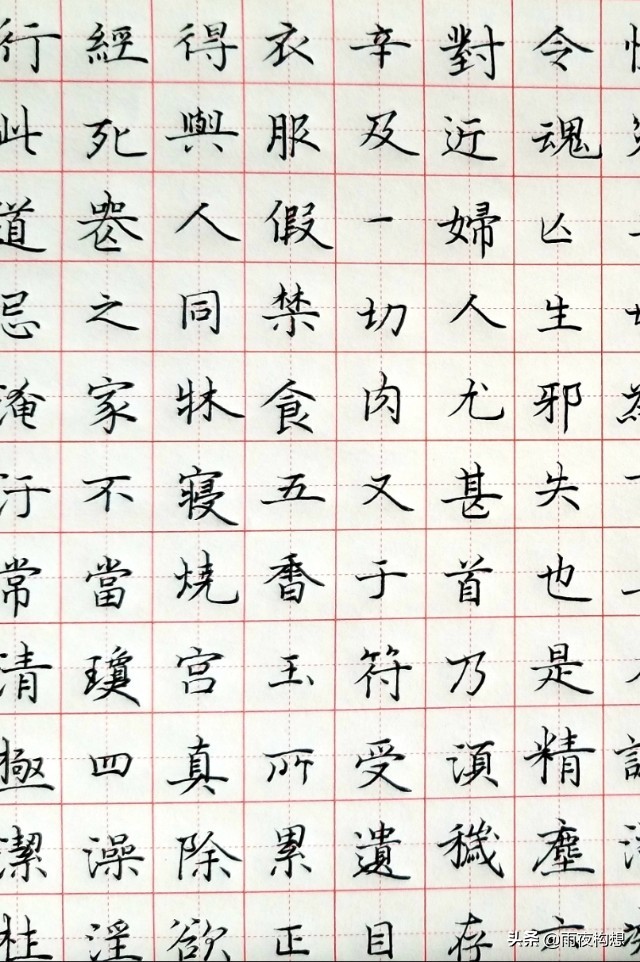 行此道忌淹汙
經死喪之家不
得與人同牀寢
衣服假禁食五
辛及一切肉又
對近婦人尤甚
令魂亾生邪失
常當燒香于首也
清瓊宮玉符乃是
極四真所受須精
潔澡除累遺穢塵
杜淫欲正目存六
头条 @雨夜构想